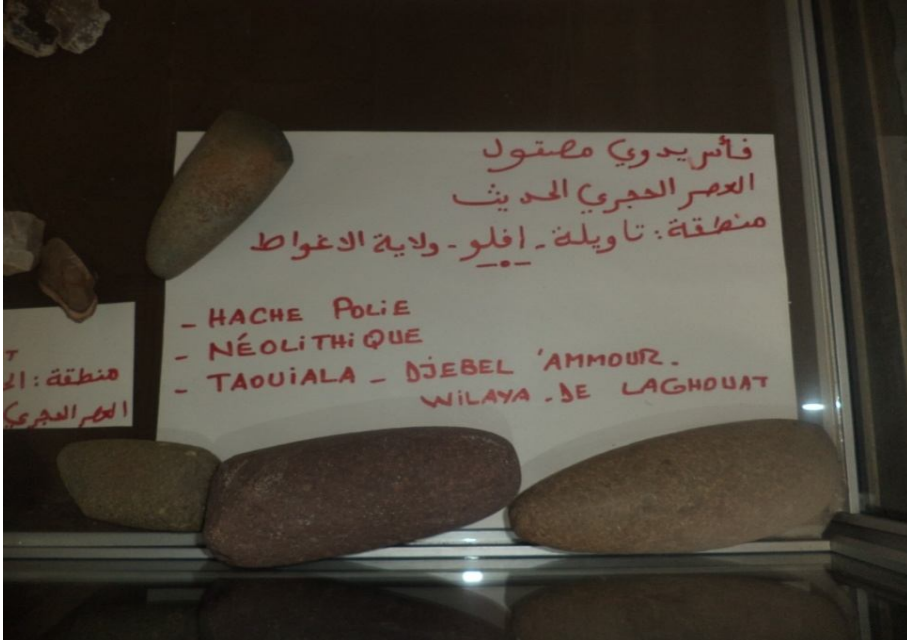 فأس يدوي مصقول
العصر الحجري الحديث
منطقة: تاويلة - افلو - ولاية الاغواط
- HACHE POLIE
- NÉOLITHIQUE
- TAOUIALA - DJEBEL 'AMMOUR.
WILAYA - DE LAGHOUAT
T
منطقة: ال
العصر الحجري